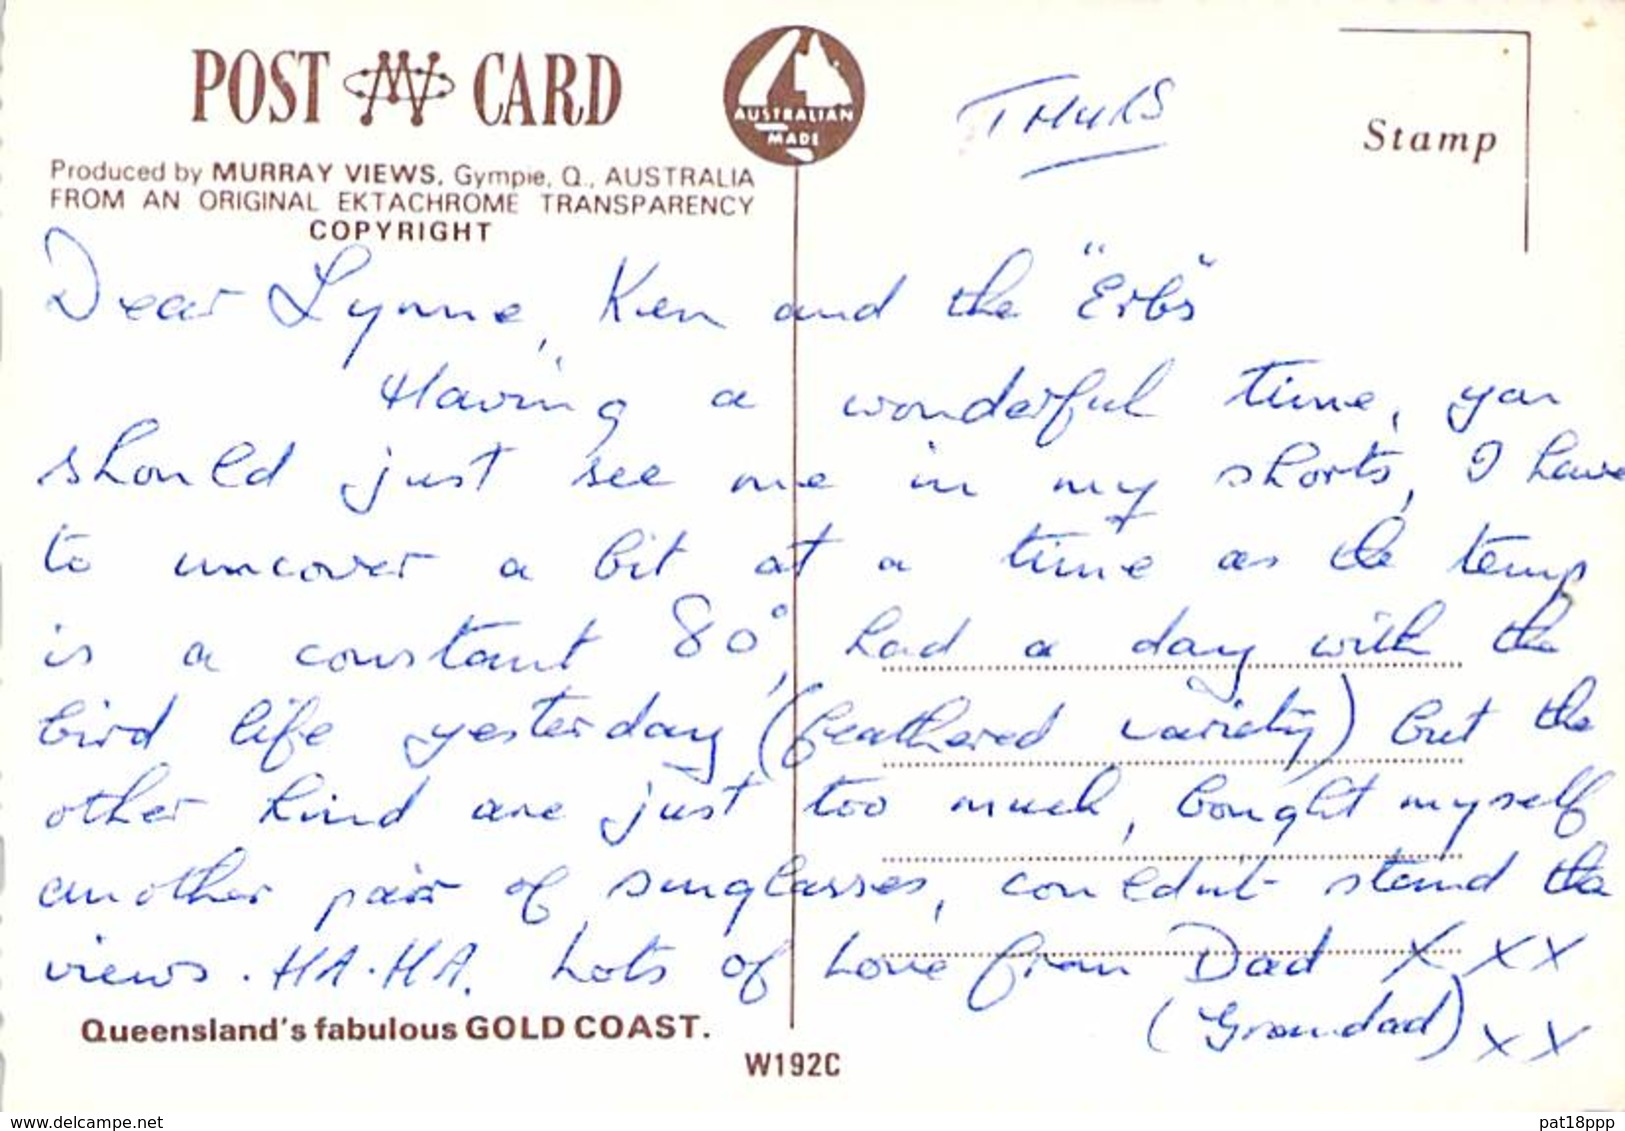 POST CARD
AUSTRALIAN
MADE
THURS
Stamp
Produced by MURRAY VIEWS, Gympie, Q., AUSTRALIA
FROM AN ORIGINAL EKTACHROME TRANSPARENCY
COPYRIGHT
Dear Lynne, Ken and the "Erbs"
Having a wonderful time, you
should just see me in my shorts, I have
to uncover a bit at a time as the temp
is a constant 80°, had a day with the
bird life yesterday (feathered variety) but the
other kind are just too much, bought myself
another pair of sunglasses, couldn't stand the
views. HA. HA. Lots of Love from Dad X X X
(Grandad) X X
Queensland's fabulous GOLD COAST.
W192C
www.delcampe.net
pat18ppp